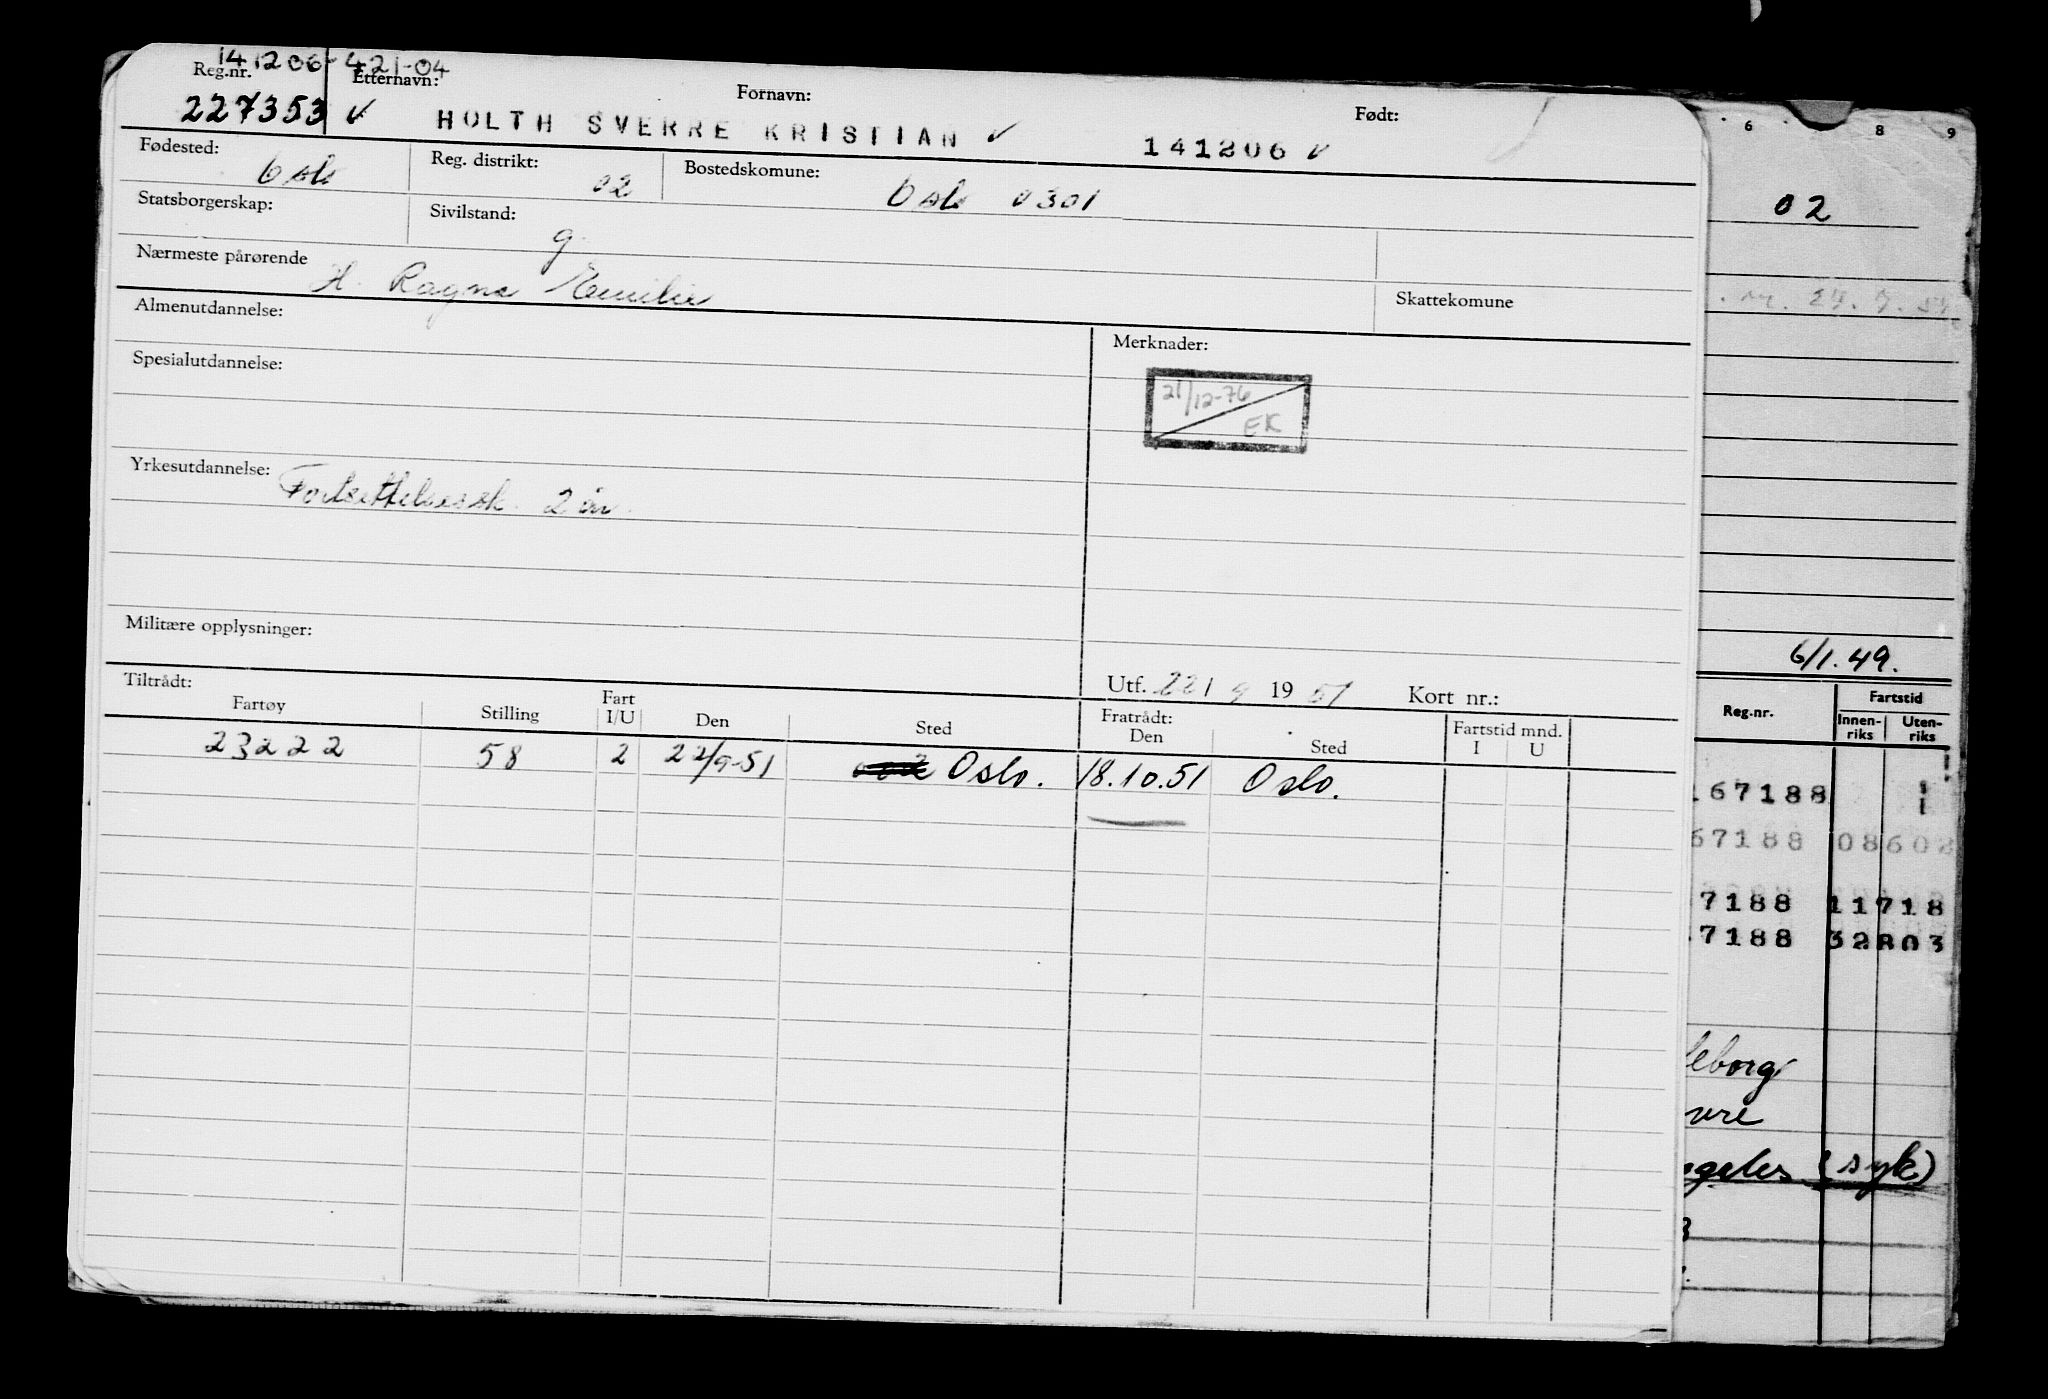 141206-421-04
Reg.nr. Etternavn: Fornavn: Født:
227353 ✓ HOLTH SVERRE KRISTIAN ✓ 141206 ✓
Fødested: Oslo Reg. distrikt: 02 Bostedskomune: Oslo 0301
Statsborgerskap: Sivilstand: g.
Nærmeste pårørende H. Ragna Emilie Skattekomune
Almenutdannelse: Merknader:
Spesialutdannelse:
21/12-76
EK
Yrkesutdannelse: Fortsettelsessk. 2 år.
Militære opplysninger:
Tiltrådt: Utf. 22/ 9 19 51 Kort nr.:
Fartøy Stilling Fart I/U Den Sted Fratrådt: Den Sted Fartstid mnd. I U
23222 58 2 22/9-51 Oslo. 18.10.51 Oslo.
6 8 9
02
6/1.49.
Reg.nr. Fartstid
Innen-riks Uten-riks
167188
67188 08602
7188 11718
7188 32803
leborg
vre
ngeles (syk)